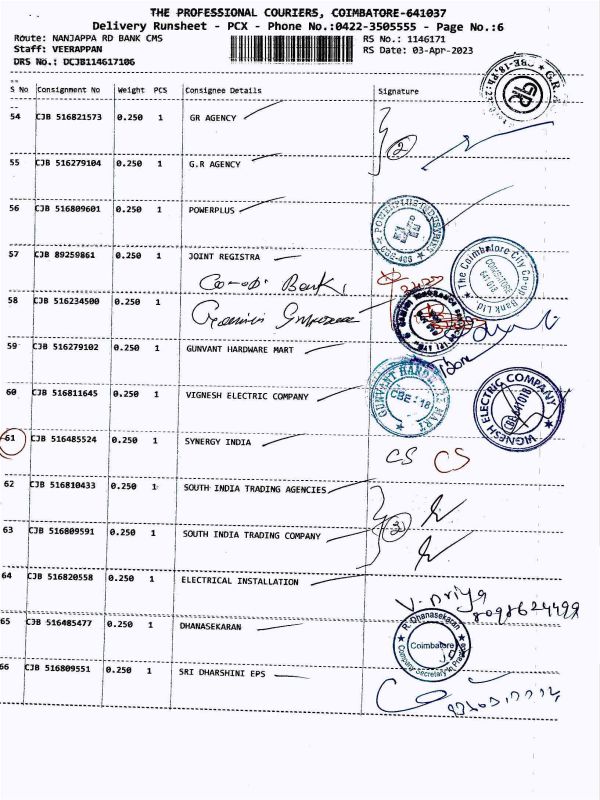 THE PROFESSIONAL COURIERS, COIMBATORE-641037
Delivery Runsheet - PCX - Phone No.:0422-3505555 - Page No.:6
Route: NANJAPPA RD BANK CMS RS No.: 1146171
Staff: VEERAPPAN RS Date: 03-Apr-2023
DRS No.: DCJB114617106
S No Consignment No Weight PCS Consignee Details Signature
54 CJB 516821573 0.250 1 GR AGENCY
2
55 CJB 516279104 0.250 1 G.R AGENCY
56 CJB 516809601 0.250 1 POWERPLUS
POWERPLUS INDUSTRIES
57 CJB 89259861 0.250 1 JOINT REGISTRA
Co-op. Bank,
The Coimbatore City Co-op. Bank Ltd.
58 CJB 516234500 0.250 1
59 CJB 516279102 0.250 1 GUNVANT HARDWARE MART
GUNVANT HARDWARE MART
CBE - 18
60 CJB 516811645 0.250 1 VIGNESH ELECTRIC COMPANY
VIGNESH ELECTRIC COMPANY
CBE-641018
61 CJB 516485524 0.250 1 SYNERGY INDIA
CS CS
62 CJB 516810433 0.250 1 SOUTH INDIA TRADING AGENCIES
63 CJB 516809591 0.250 1 SOUTH INDIA TRADING COMPANY
64 CJB 516820558 0.250 1 ELECTRICAL INSTALLATION
V. priya
65 CJB 516485477 0.250 1 DHANASEKARAN
R. Dhanasekaran
Coimbatore
Company Secretary in Practice
66 CJB 516809551 0.250 1 SRI DHARSHINI EPS